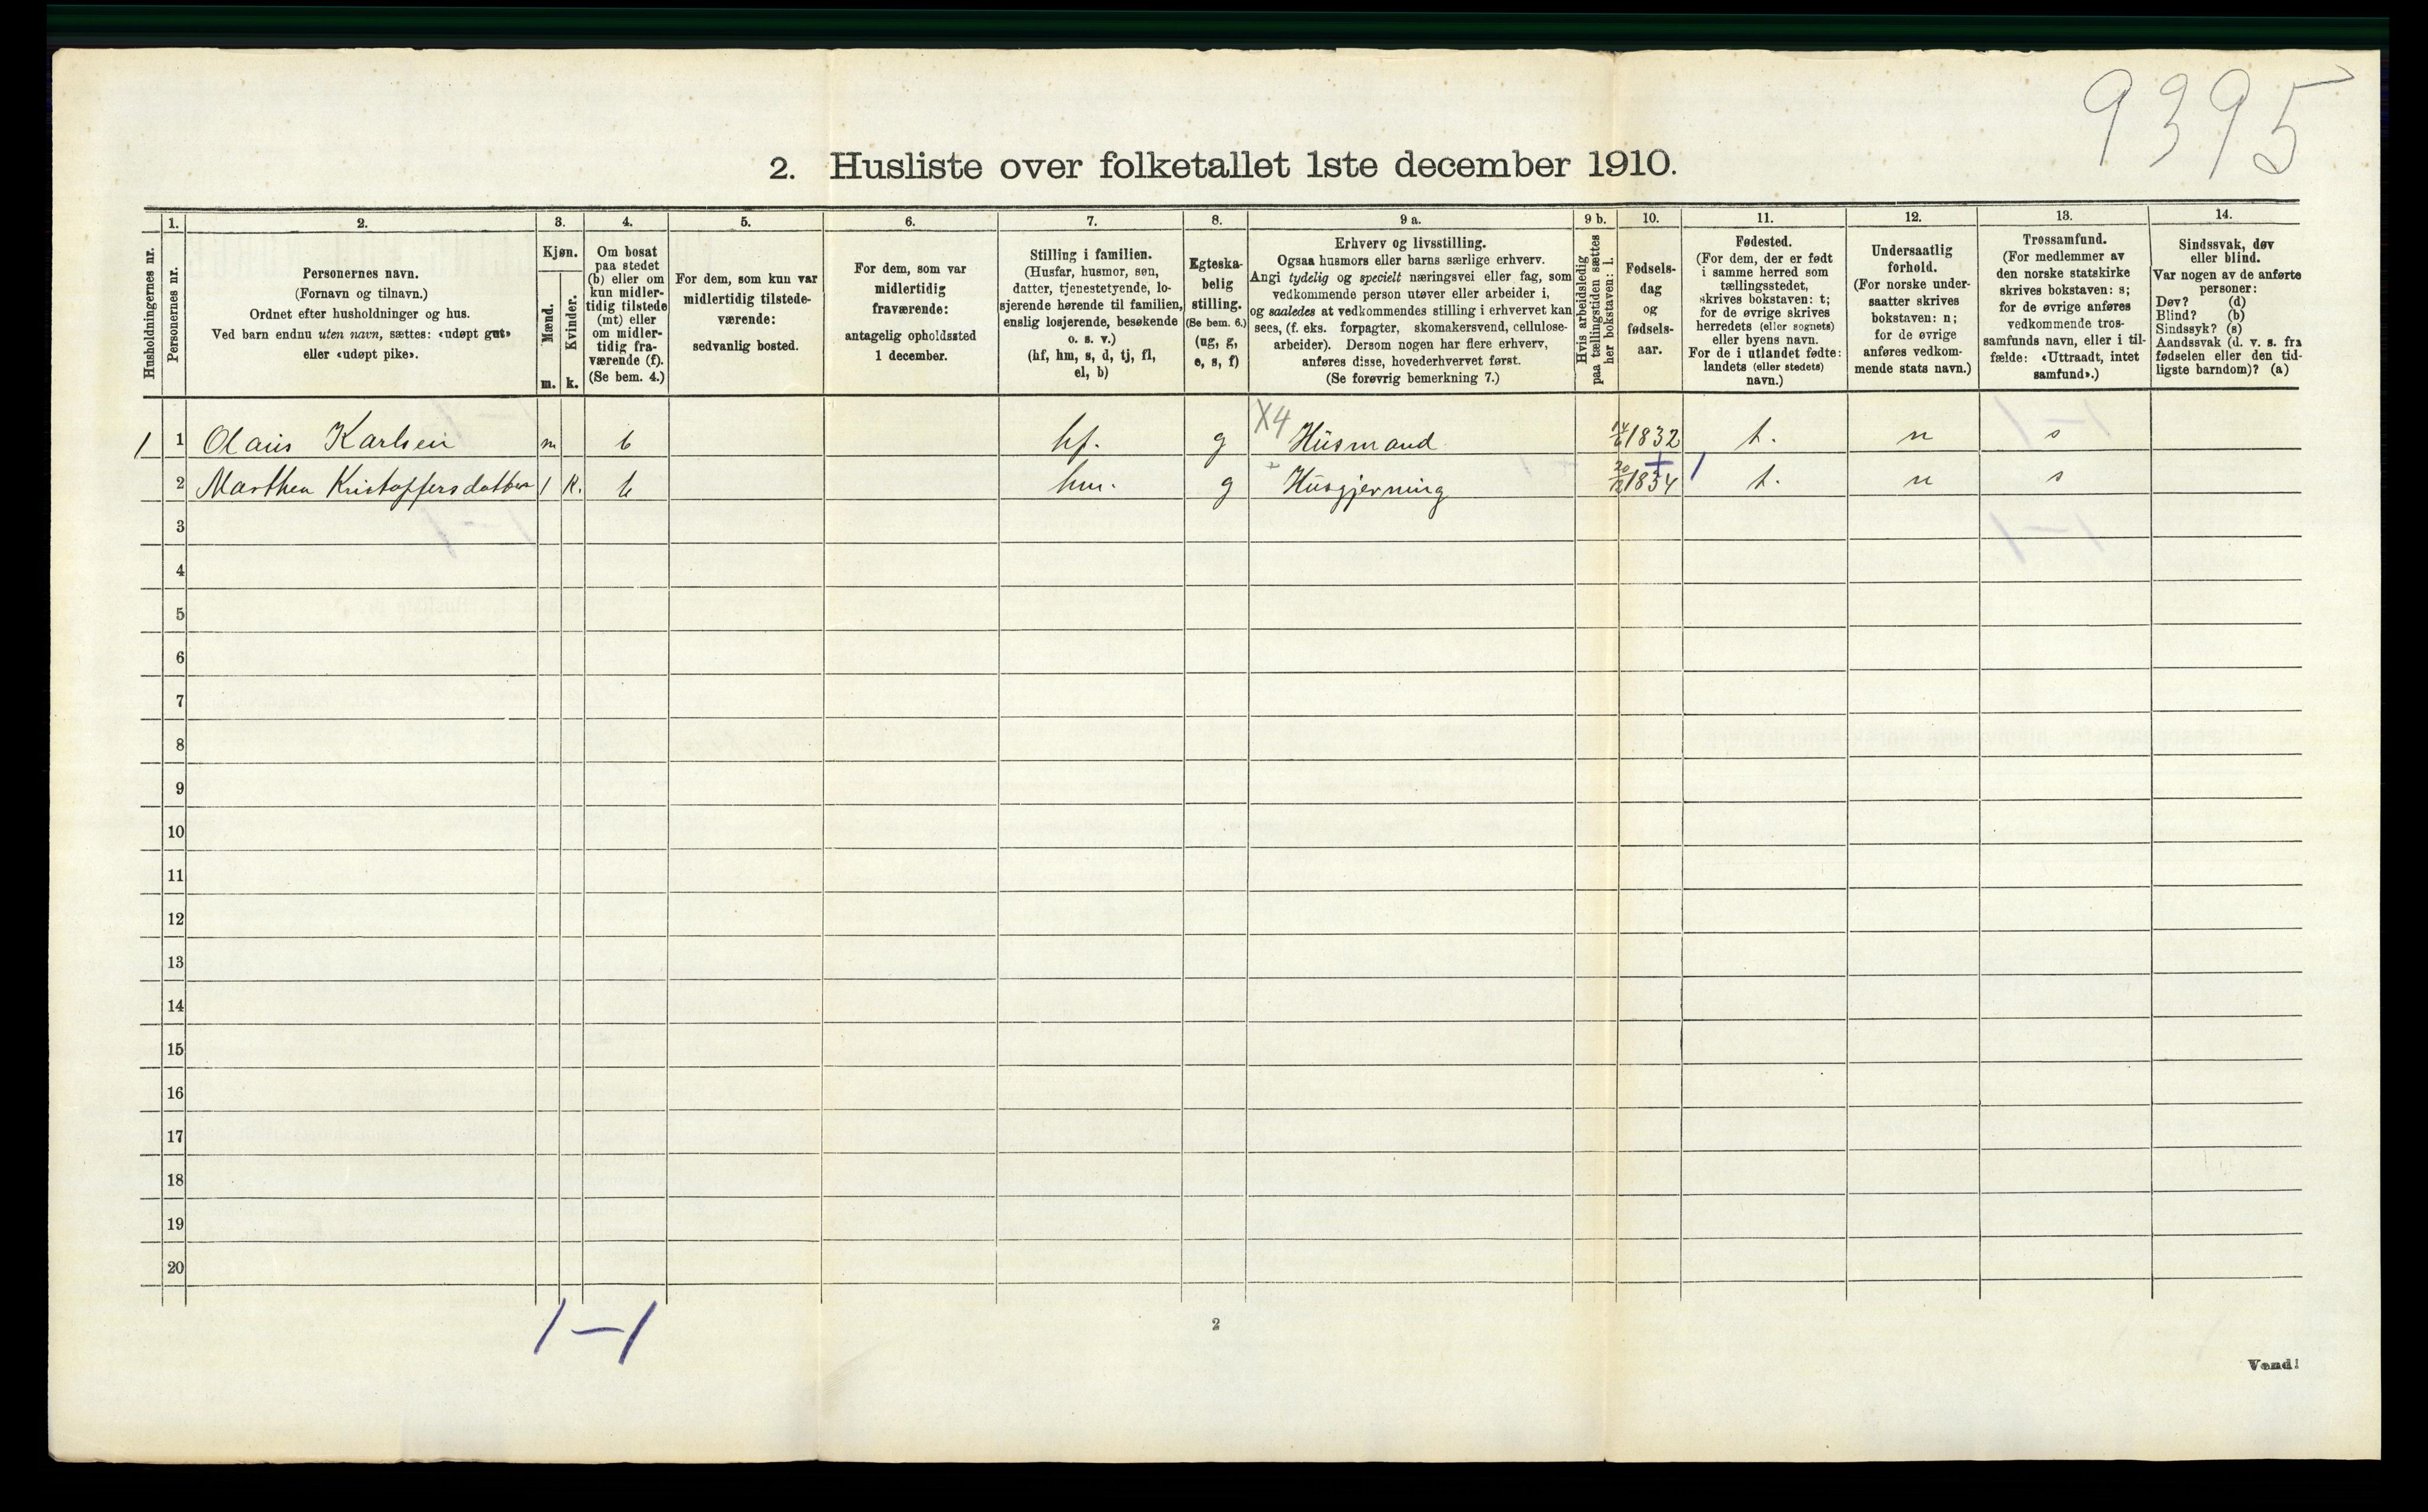 9395
2. Husliste over folketallet 1ste december 1910.
Husholdningernes nr.
1.
Personernes nr.
2.
Personernes navn.
(Fornavn og tilnavn.)
Ordnet efter husholdninger og hus.
Ved barn endnu uten navn, sættes: «udøpt gut»
eller «udøpt pike».
3.
Kjøn.
Mænd.
Kvinder.
m. k.
4.
Om bosat
paa stedet
(b) eller om
kun midler-
tidig tilstede
(mt) eller
om midler-
tidig fra-
værende (f).
(Se bem. 4.)
5.
For dem, som kun var
midlertidig tilstede-
værende:
sedvanlig bosted.
6.
For dem, som var
midlertidig
fraværende:
antagelig opholdssted
1 december.
7.
Stilling i familien.
(Husfar, husmor, søn,
datter, tjenestetyende, lo-
sjerende hørende til familien,
enslig losjerende, besøkende
o. s. v.)
(hf, hm, s, d, tj, fl,
el, b)
8.
Egteska-
belig
stilling.
(Se bem. 6.)
(ug, g,
e, s, f)
9 a.
Erhverv og livsstilling.
Ogsaa husmors eller barns særlige erhverv.
Angi tydelig og specielt næringsvei eller fag, som
vedkommende person utøver eller arbeider i,
og saaledes at vedkommendes stilling i erhvervet kan
sees, (f. eks. forpagter, skomakersvend, cellulose-
arbeider). Dersom nogen har flere erhverv,
anføres disse, hovederhvervet først.
(Se forøvrig bemerkning 7.)
9 b.
Hvis arbeidsledig
paa tællingstiden sættes
her bokstaven: l.
10.
Fødsels-
dag
og
fødsels-
aar.
11.
Fødested.
(For dem, der er født
i samme herred som
tællingsstedet,
skrives bokstaven: t;
for de øvrige skrives
herredets (eller sognets)
eller byens navn.
For de i utlandet fødte:
landets (eller stedets)
navn.)
12.
Undersaatlig
forhold.
(For norske under-
saatter skrives
bokstaven: n;
for de øvrige
anføres vedkom-
mende stats navn.)
13.
Trossamfund.
(For medlemmer av
den norske statskirke
skrives bokstaven: s;
for de øvrige anføres
vedkommende tros-
samfunds navn, eller i til-
fælde: «Uttraadt, intet
samfund».)
14.
Sindssvak, døv
eller blind.
Var nogen av de anførte
personer:
Døv? (d)
Blind? (b)
Sindssyk? (s)
Aandssvak (d. v. s. fra
fødselen eller den tid-
ligste barndom)? (a)
X4
1 1 Olaus Karlsen m b hf. g Husmand 14/6 1832 t. n s
2 Marthea Kristoffersdatter 1 k. b hm. g Husgjerning 20/12 1834 t. n s
3
4
5
6
7
8
9
10
11
12
13
14
15
16
17
18
19
20
1-1
2
Vend!